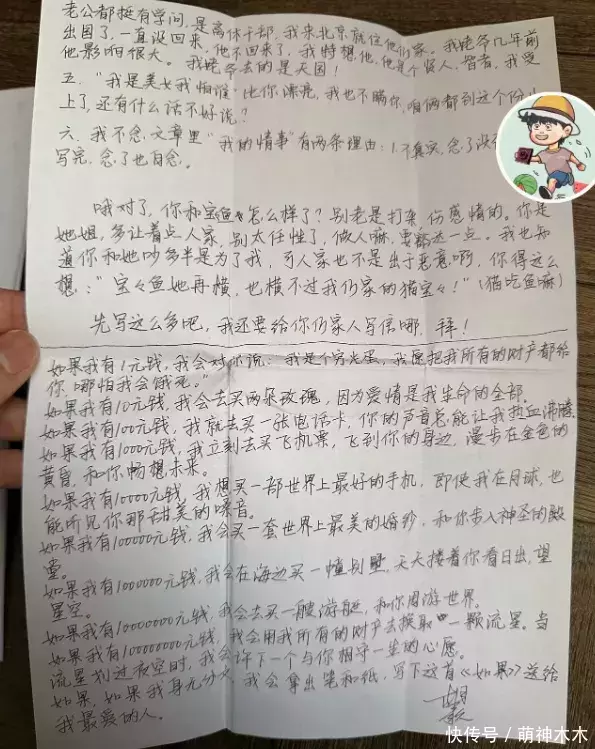 老公都挺有学问，是离休干部，我来北京就住他们家。我姥爷几年前
出国了，一直没回来，他不回来了，我特想他，他是个贤人，智者，我受
他影响很大。我姥爷去的是天国！
五．“我是美女我怕谁”比你漂亮，我也不瞒你，咱俩都到这个份儿
上了，还有什么话不好说？
六．我不念，文章里“我的情事”有两条理由：1.不真实，念了没
写完，念了也白念。
哦对了，你和宝鱼怎么样了？别老是打架，伤感情的。你是
她姐，多让着点人家，别太任性了，做人嘛，要豁达一点。我也知
道你和她吵多半是为了我，可人家也不是出于恶意啊，你得这么
想：“宝宝鱼她再横，也横不过我们家的猫宝宝！”（猫吃鱼嘛）
先写这么多吧，我还要给你们家人写信哪，拜！
如果我有1元钱，我会对你说：我是个穷光蛋，我愿把我所有的财产都给
你，哪怕我会饿死。”
如果我有10元钱，我会去买两朵玫瑰，因为爱情是我生命的全部。
如果我有100元钱，我就去买一张电话卡，你的声音总能让我热血沸腾。
如果我有1000元钱，我立刻去买飞机票，飞到你的身边，漫步在金色的
黄昏，和你畅想未来。
如果我有10000元钱，我想买一部世界上最好的手机，即使我在月球，也
能听见你那甜美的嗓音。
如果我有100000元钱，我会买一套世界上最美的婚纱，和你步入神圣的殿
堂。
如果我有1000000元钱，我会在海边买一幢别墅，天天搂着你看日出，望
星空。
如果我有10000000元钱，我会去买一艘游艇，和你周游世界。
如果我有100000000元钱，我会用我所有的财产去换取一颗流星。当
流星划过夜空时，我会许下一个与你相守一生的心愿。
如果，如果我身无分文，我会拿出笔和纸，写下这首《如果》送给
我最爱的人。
快传号／萌神木木